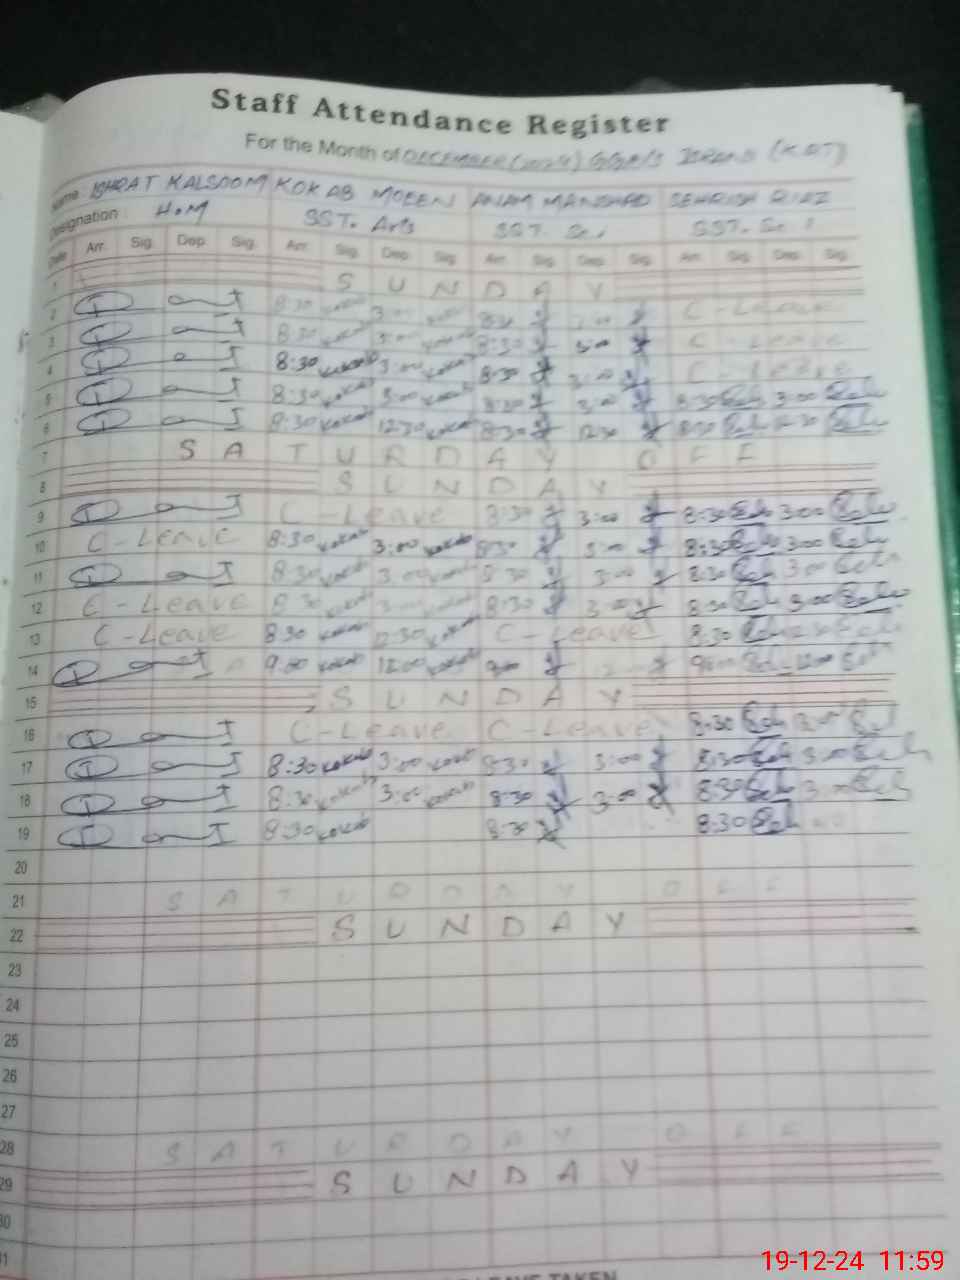 Staff Attendance Register
For the Month of DECEMBER (2024)
Name ISHRAT KALSOOM KOKAB MOBEEN ANAM MANSHAD SEHRISH RIAZ
Designation : H.M SST. Arts SST. Sc. SST. Sc.
Date Arr. Sig. Dep. Sig. Arr. Sig. Dep. Sig. Arr. Sig. Dep. Sig. Arr. Sig. Dep. Sig.
1 S U N D A Y
2 8:30 kokab 3:00 kokab 8:30 3:00 C-Leave
3 8:30 kokab 3:00 kokab 8:30 3:00 C-Leave
4 8:30 kokab 3:00 kokab 8:30 3:00 C-Leave
5 8:30 kokab 3:00 kokab 8:30 3:00 8:30 3:00
6 8:30 kokab 12:30 kokab 8:30 12:30 8:30 12:30
7 S A T U R D A Y O F F
8 S U N D A Y
9 C-Leave 8:30 3:00 8:30 3:00
10 C-Leave 8:30 kokab 3:00 kokab 8:30 3:00 8:30 3:00
11 8:30 kokab 3:00 kokab 8:30 3:00 8:30 3:00
12 C-Leave 8:30 kokab 3:00 kokab 8:30 3:00 8:30 3:00
13 C-Leave 8:30 kokab 12:30 kokab C-Leave 8:30 12:30
14 9:00 kokab 12:00 kokab 9:00 9:00 12:00
15 S U N D A Y
16 C-Leave C-Leave 8:30 3:00
17 8:30 kokab 3:00 kokab 8:30 3:00 8:30 3:00
18 8:30 kokab 3:00 kokab 8:30 3:00 8:30 3:00
19 8:30 kokab 8:30 8:30
20
21 S A T U R D A Y O F F
22 S U N D A Y
23
24
25
26
27
28 S A T U R D A Y O F F
29 S U N D A Y
30
31
LEAVE TAKEN
19-12-24 11:59